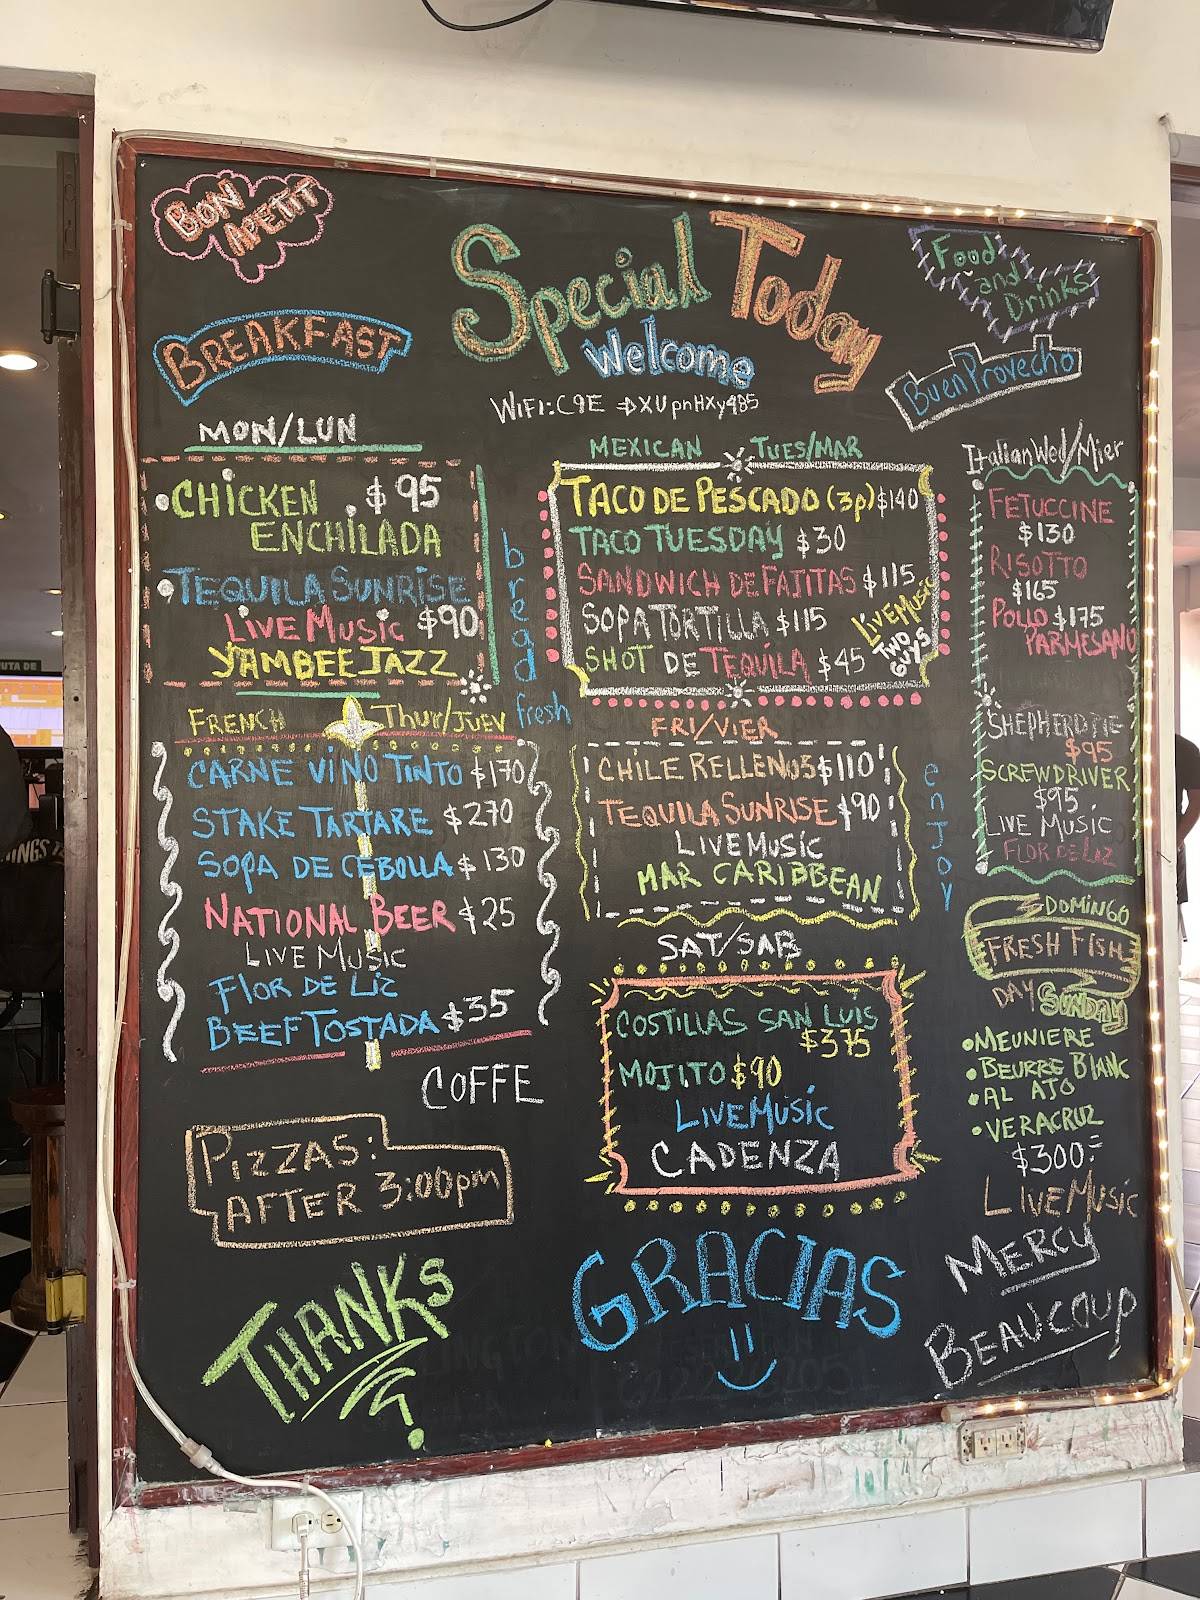 BON
APETIT
Special Today
Welcome
WiFi: C9E →DXUpnHXy485
Food
and
Drinks
Buen Provecho
BREAKFAST
MON/LUN
CHICKEN $95
ENCHILADA
TEQUILA SUNRISE
LIVE MUSIC $90
YAMBEE JAZZ
bread
fresh
MEXICAN TUES/MAR
TACO DE PESCADO (3p) $140
TACO TUESDAY $30
SANDWICH DE FAJITAS $115
SOPA TORTILLA $115
SHOT DE TEQUILA $45
LIVE MUSIC
TWO
GUYS
Italian Wed/Mier
FETUCCINE
$130
RISOTTO
$165
POLLO $175
PARMESANO
SHEPHERD PIE
$95
SCREWDRIVER
$95
LIVE MUSIC
FLOR DE LIZ
FRENCH THUR/JUEV
CARNE VINO TINTO $170
STAKE TARTARE $270
SOPA DE CEBOLLA $130
NATIONAL BEER $25
LIVE MUSIC
FLOR DE LIZ
BEEF TOSTADA $35
COFFE
FRI/VIER
CHILE RELLENOS $110
TEQUILA SUNRISE $90
LIVE MUSIC
MAR CARIBBEAN
enjoy
SAT/SAB
COSTILLAS SAN LUIS
$375
MOJITO $90
LIVE MUSIC
CADENZA
DOMINGO
FRESH FISH
DAY SUNDAY
•MEUNIERE
•BEURRE BLANC
•AL AJO
•VERACRUZ
$300=
LIVE MUSIC
PIZZAS:
AFTER 3:00pm
THANKS
GRACIAS
MERCY
BEAUCOUP
RUTA DE